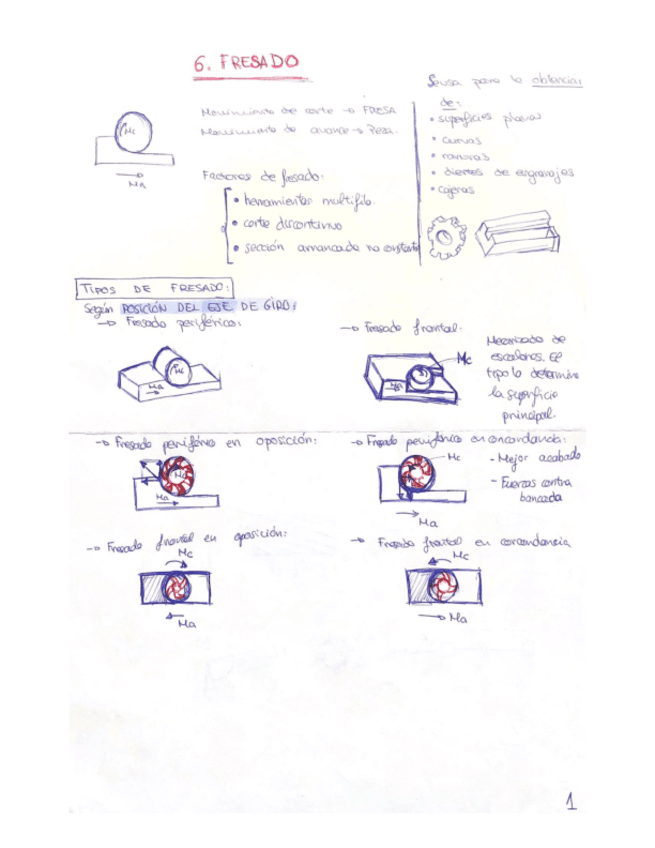 6. FRESADO
Mc
Ma
Movimiento de corte → FRESA
Movimiento de avance → Pieza.
Factores de fresado:
• herramientas multifilo
• corte discontinuo
• sección arrancada no constante
Se usa para la obtencias
de:
• superficies planas
• curvas
• ranuras
• dientes de engranajes
• cajeras
TIPOS DE FRESADO:
Según POSICIÓN DEL EJE DE GIRO:
→ Fresado periférico:
Mc
Ma
→ Fresado frontal:
Mc
Ma
Mecanizado de
escalones. El
tipo lo determina
la superficie
principal.
→ Fresado periférico en oposición:
Mc
Ma
→ Fresado periférico en concordancia:
Mc
Ma
- Mejor acabado
- Fuerzas contra
bancada
→ Fresado frontal en oposición:
Mc
Ma
→ Fresado frontal en concordancia
Mc
Ma
1